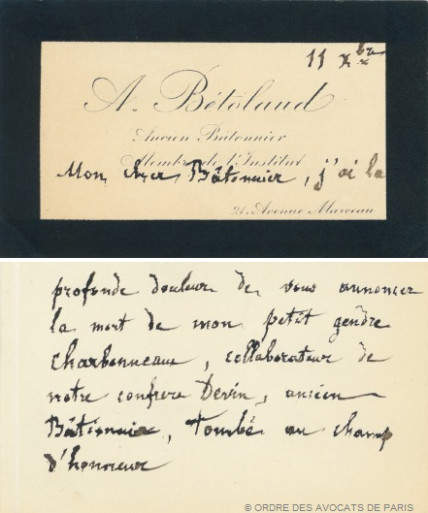 11 Xbre
A. Bétolaud
Ancien Bâtonnier
Membre de l'Institut
Mon cher Bâtonnier, j'ai la
Avenue Marceau
profonde douleur de vous annoncer
la mort de mon petit gendre
Charbonneaux, collaborateur de
notre confrere Devin, ancien
Bâtonnier, Tombé au champ
d'honneur
© ORDRE DES AVOCATS DE PARIS